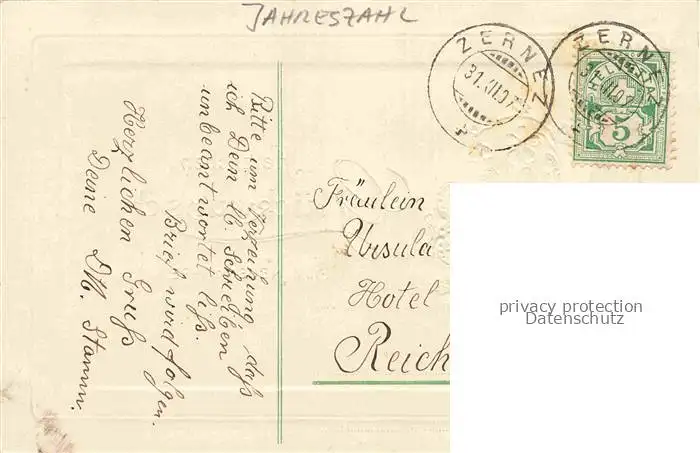 JAHRESZAHL
ZERNEZ
31.XII.07
ZERNEZ
31.XII.07
HELVETIA
5
Bitte um Verzeihung daß
ich Dein lb. Schreiben
unbeantwortet ließ.
Brief wird folgen.
Herzlichen Gruß
Deine DM. Stamm.
Fräulein
Ursula
Hotel
Reich
privacy protection
Datenschutz